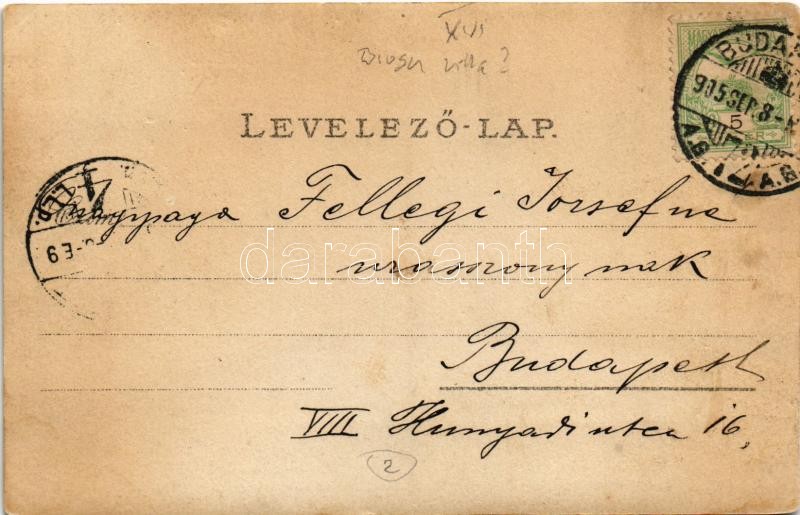 XVI
villa?
LEVELEZŐ-LAP.
MAGYAR
5
BUDAP
905 SEP. 8
A.G.
Fellegi Jozsefne
urasszonynak
Budapest
VIII Hunyadi utca 16,
2
darabanth